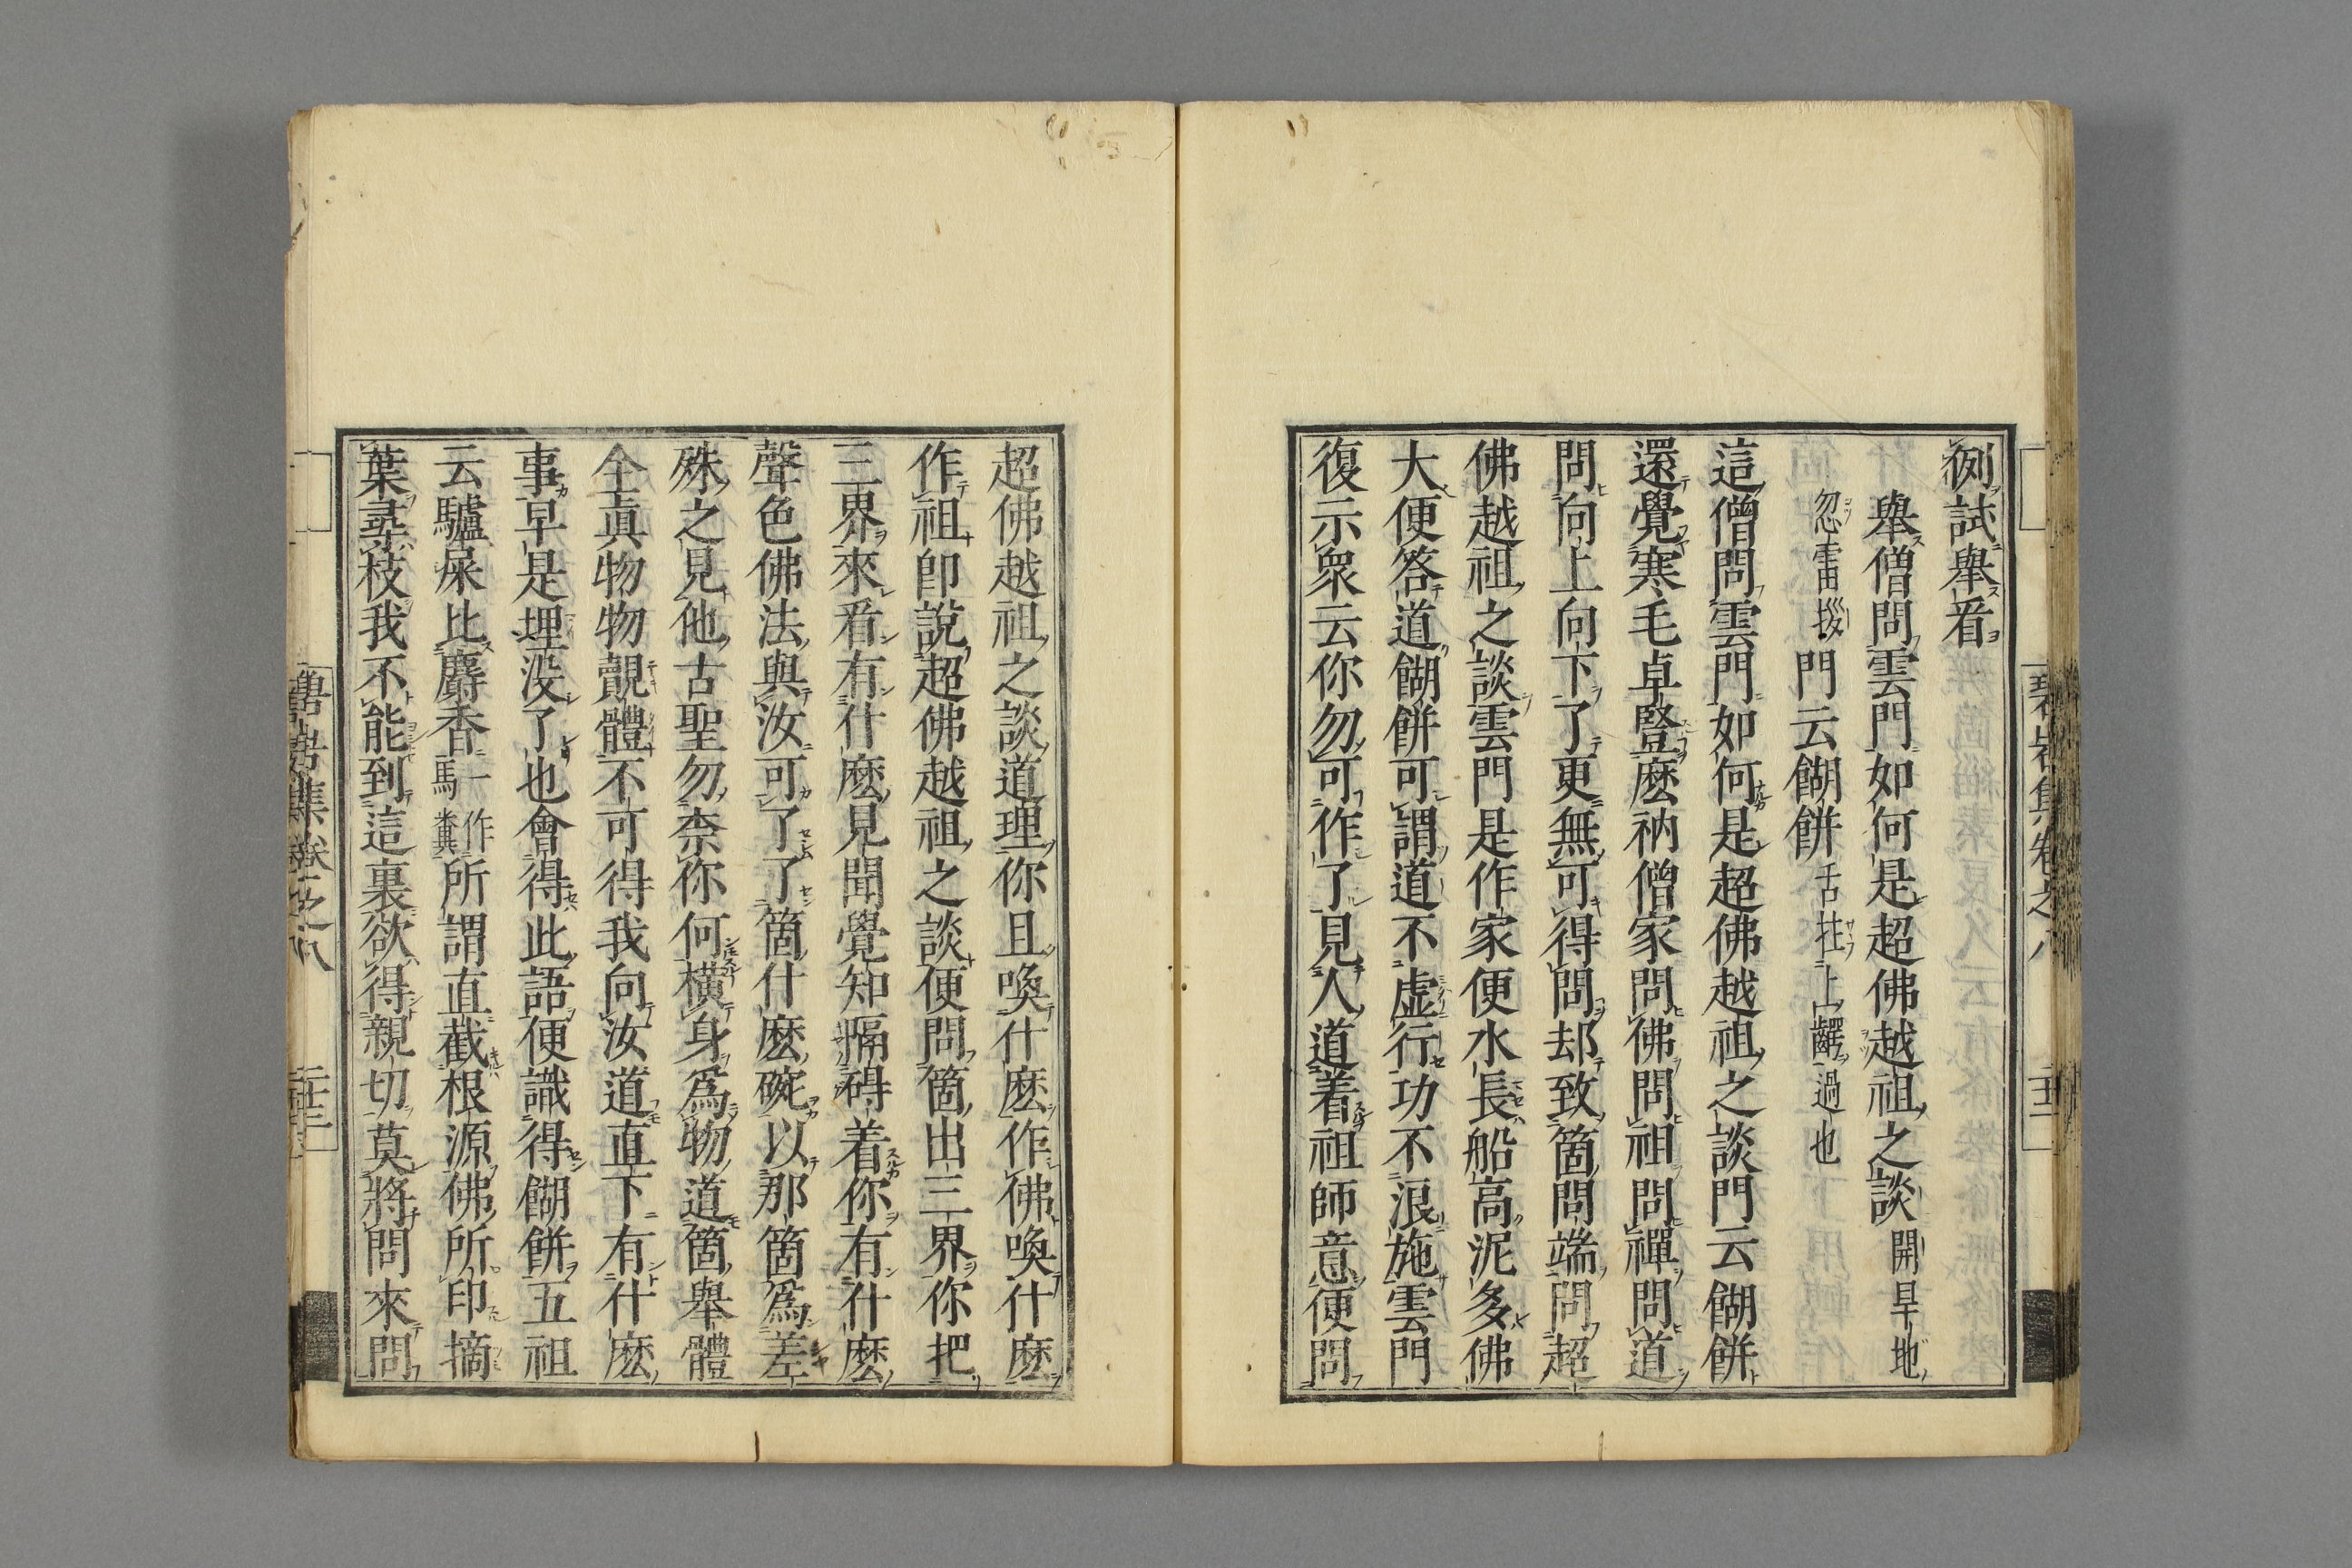 例試擧看
擧僧問雲門如何是超佛越祖之談開旱地
忽雷撥門云餬餅舌拄上齶過也
這僧問雲門如何是超佛越祖之談門云餬餅
還覺寒毛卓豎麽衲僧家問佛問祖問禪問道
問向上向下了更無可得問却致箇問端問超
佛越祖之談雲門是作家便水長船高泥多佛
大便答道餬餅可謂道不虚行功不浪施雲門
復示衆云你勿可作了見人道着祖師意便問
超佛越祖之談道理你且喚什麽作佛喚什麽
作祖即說超佛越祖之談便問箇出三界你把
三界來看有什麽見聞覺知隔碍着你有什麽
聲色佛法與汝可了了箇什麽碗以那箇爲差
殊之見他古聖勿柰你何横身爲物道箇擧體
全眞物物覿體不可得我向汝道直下有什麽
事早是埋没了也會得此語便識得餬餅五祖
云驢屎比麝香一作馬糞所謂直截根源佛所印摘
葉尋枝我不能到這裏欲得親切莫將問來問
碧岩集卷之八